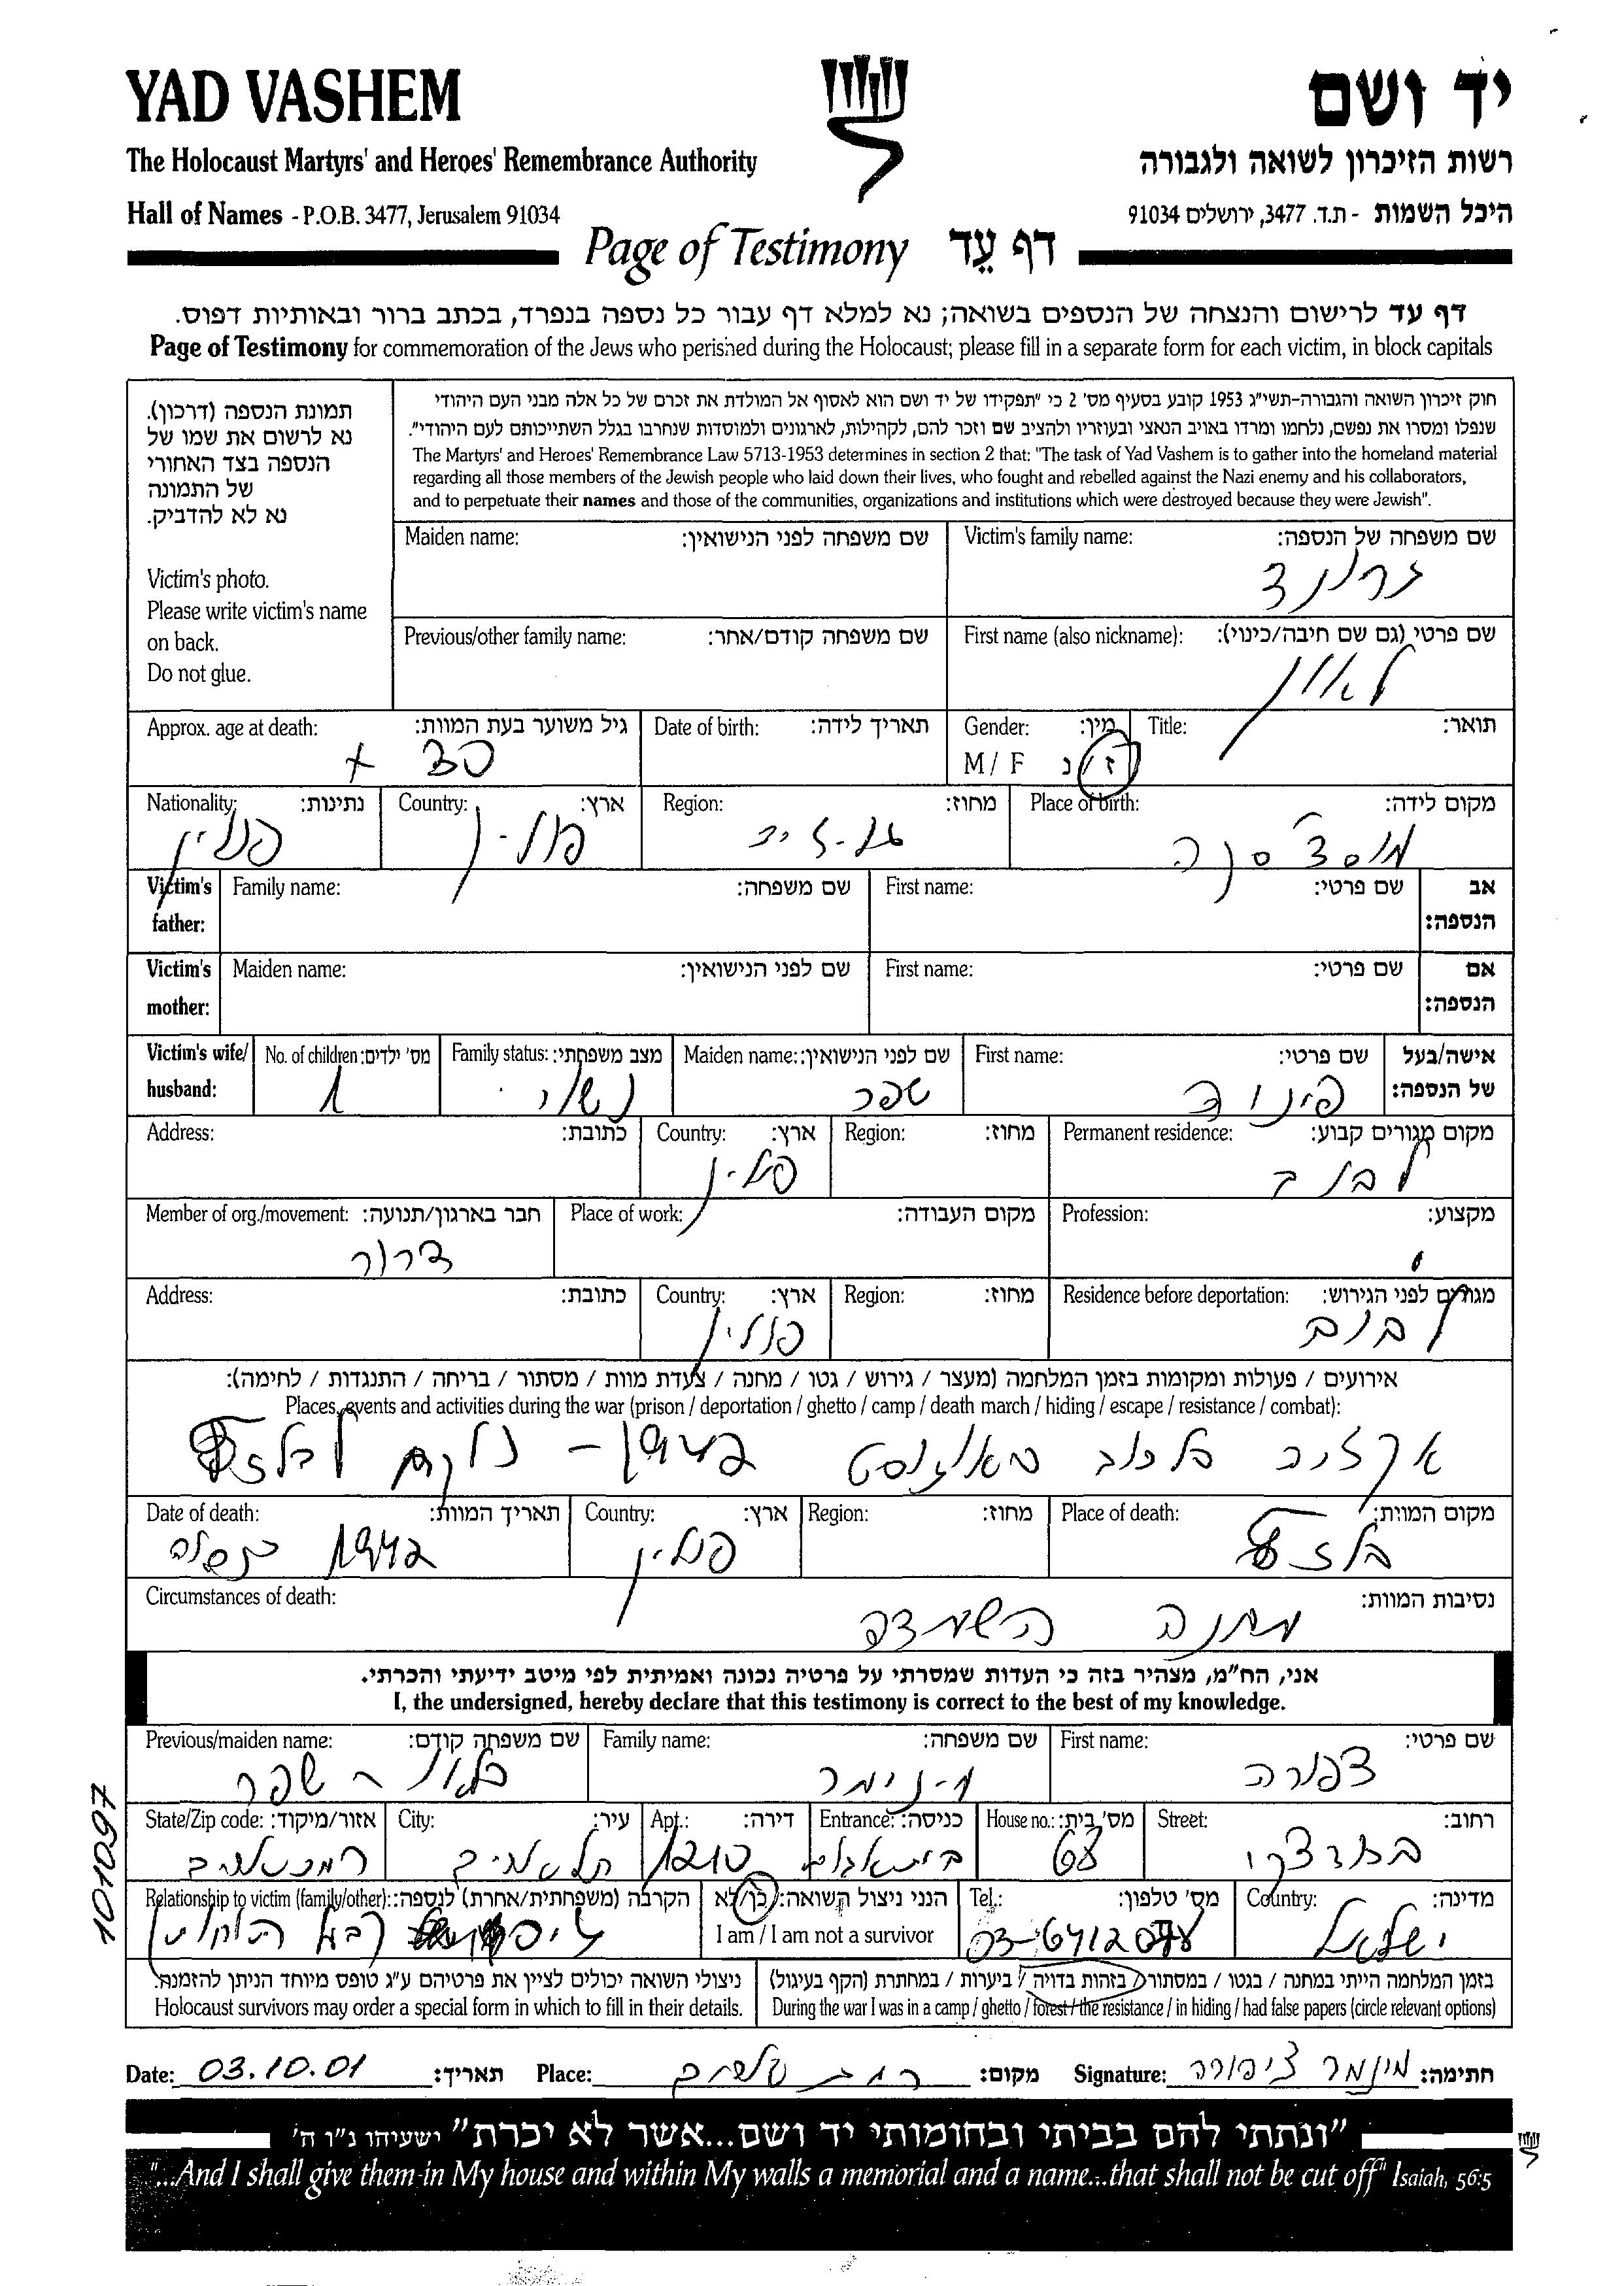 YAD VASHEM
יד ושם
The Holocaust Martyrs' and Heroes' Remembrance Authority
רשות הזיכרון לשואה ולגבורה
Hall of Names - P.O.B. 3477, Jerusalem 91034
היכל השמות - ת.ד. 3477, ירושלים 91034
Page of Testimony דף עֵד
דף עד לרישום והנצחה של הנספים בשואה; נא למלא דף עבור כל נספה בנפרד, בכתב ברור ובאותיות דפוס.
Page of Testimony for commemoration of the Jews who perished during the Holocaust; please fill in a separate form for each victim, in block capitals
תמונת הנספה (דרכון).
נא לרשום את שמו של
הנספה בצד האחורי
של התמונה
נא לא להדביק.
Victim's photo.
Please write victim's name
on back.
Do not glue.
חוק זיכרון השואה והגבורה-תשי"ג 1953 קובע בסעיף מס' 2 כי "תפקידו של יד ושם הוא לאסוף אל המולדת את זכרם של כל אלה מבני העם היהודי
שנפלו ומסרו את נפשם, נלחמו ומרדו באויב הנאצי ובעוזריו ולהציב שם וזכר להם, לקהילות, לארגונים ולמוסדות שנחרבו בגלל השתייכותם לעם היהודי".
The Martyrs' and Heroes' Remembrance Law 5713-1953 determines in section 2 that: "The task of Yad Vashem is to gather into the homeland material
regarding all those members of the Jewish people who laid down their lives, who fought and rebelled against the Nazi enemy and his collaborators,
and to perpetuate their names and those of the communities, organizations and institutions which were destroyed because they were Jewish".
Victim's family name: שם משפחה של הנספה:
Maiden name: שם משפחה לפני הנישואין:
First name (also nickname): שם פרטי (גם שם חיבה/כינוי):
לאון
Previous/other family name: שם משפחה קודם/אחר:
Title: תואר:
Gender: מין:
M / F ז/נ
Date of birth: תאריך לידה:
Approx. age at death: גיל משוער בעת המוות:
30 +
Place of birth: מקום לידה:
Region: מחוז:
Country: ארץ:
פולין
Nationality: נתינות:
פולין
Victim's father: Family name: שם משפחה: First name: שם פרטי: אב הנספה:
Victim's mother: Maiden name: שם לפני הנישואין: First name: שם פרטי: אם הנספה:
Victim's wife/ husband: אישה/בעל של הנספה:
First name: שם פרטי:
Maiden name: שם לפני הנישואין:
שפר
Family status: מצב משפחתי:
נשוי
No. of children: מס' ילדים:
1
Permanent residence: מקום מגורים קבוע:
לבוב
Region: מחוז:
Country: ארץ:
פולין
Address: כתובת:
Profession: מקצוע:
Place of work: מקום העבודה:
Member of org./movement: חבר בארגון/תנועה:
דרור
Residence before deportation: מגורים לפני הגירוש:
לבוב
Region: מחוז:
Country: ארץ:
פולין
Address: כתובת:
אירועים / פעולות ומקומות בזמן המלחמה (מעצר / גירוש / גטו / מחנה / צעדת מוות / מסתור / בריחה / התנגדות / לחימה):
Places, events and activities during the war (prison / deportation / ghetto / camp / death march / hiding / escape / resistance / combat):
אקציה בלבוב באוגוסט 1942 - נלקח לבלזץ
Place of death: מקום המוות:
Region: מחוז:
Country: ארץ:
פולין
Date of death: תאריך המוות:
1942
Circumstances of death: נסיבות המוות:
מחנה השמדה
אני, הח"מ, מצהיר בזה כי העדות שמסרתי על פרטיה נכונה ואמיתית לפי מיטב ידיעתי והכרתי.
I, the undersigned, hereby declare that this testimony is correct to the best of my knowledge.
First name: שם פרטי:
צפורה
Family name: שם משפחה:
מינימר
Previous/maiden name: שם משפחה קודם:
שפר
Street: רחוב:
House no.: מס' בית:
Entrance: כניסה:
Apt.: דירה:
City: עיר:
תל אביב
State/Zip code: אזור/מיקוד:
רמת אביב
Country: מדינה:
ישראל
Tel.: מס' טלפון:
הנני ניצול השואה: כן/לא
I am / I am not a survivor
Relationship to victim (family/other): הקרבה (משפחתית/אחרת) לנספה:
בזמן המלחמה הייתי במחנה / בגטו / במסתור / בזהות בדויה / ביערות / במחתרת (הקף בעיגול)
During the war I was in a camp / ghetto / forest / the resistance / in hiding / had false papers (circle relevant options)
ניצולי השואה יכולים לציין את פרטיהם ע"ג טופס מיוחד הניתן להזמנה.
Holocaust survivors may order a special form in which to fill in their details.
Date: 03.10.01 תאריך: Place: רמת אביב מקום: Signature: ציפורה חתימה:
101097
"ונתתי להם בביתי ובחומותי יד ושם...אשר לא יכרת" ישעיהו נ"ו ה'
"...And I shall give them in My house and within My walls a memorial and a name...that shall not be cut off" Isaiah, 56:5